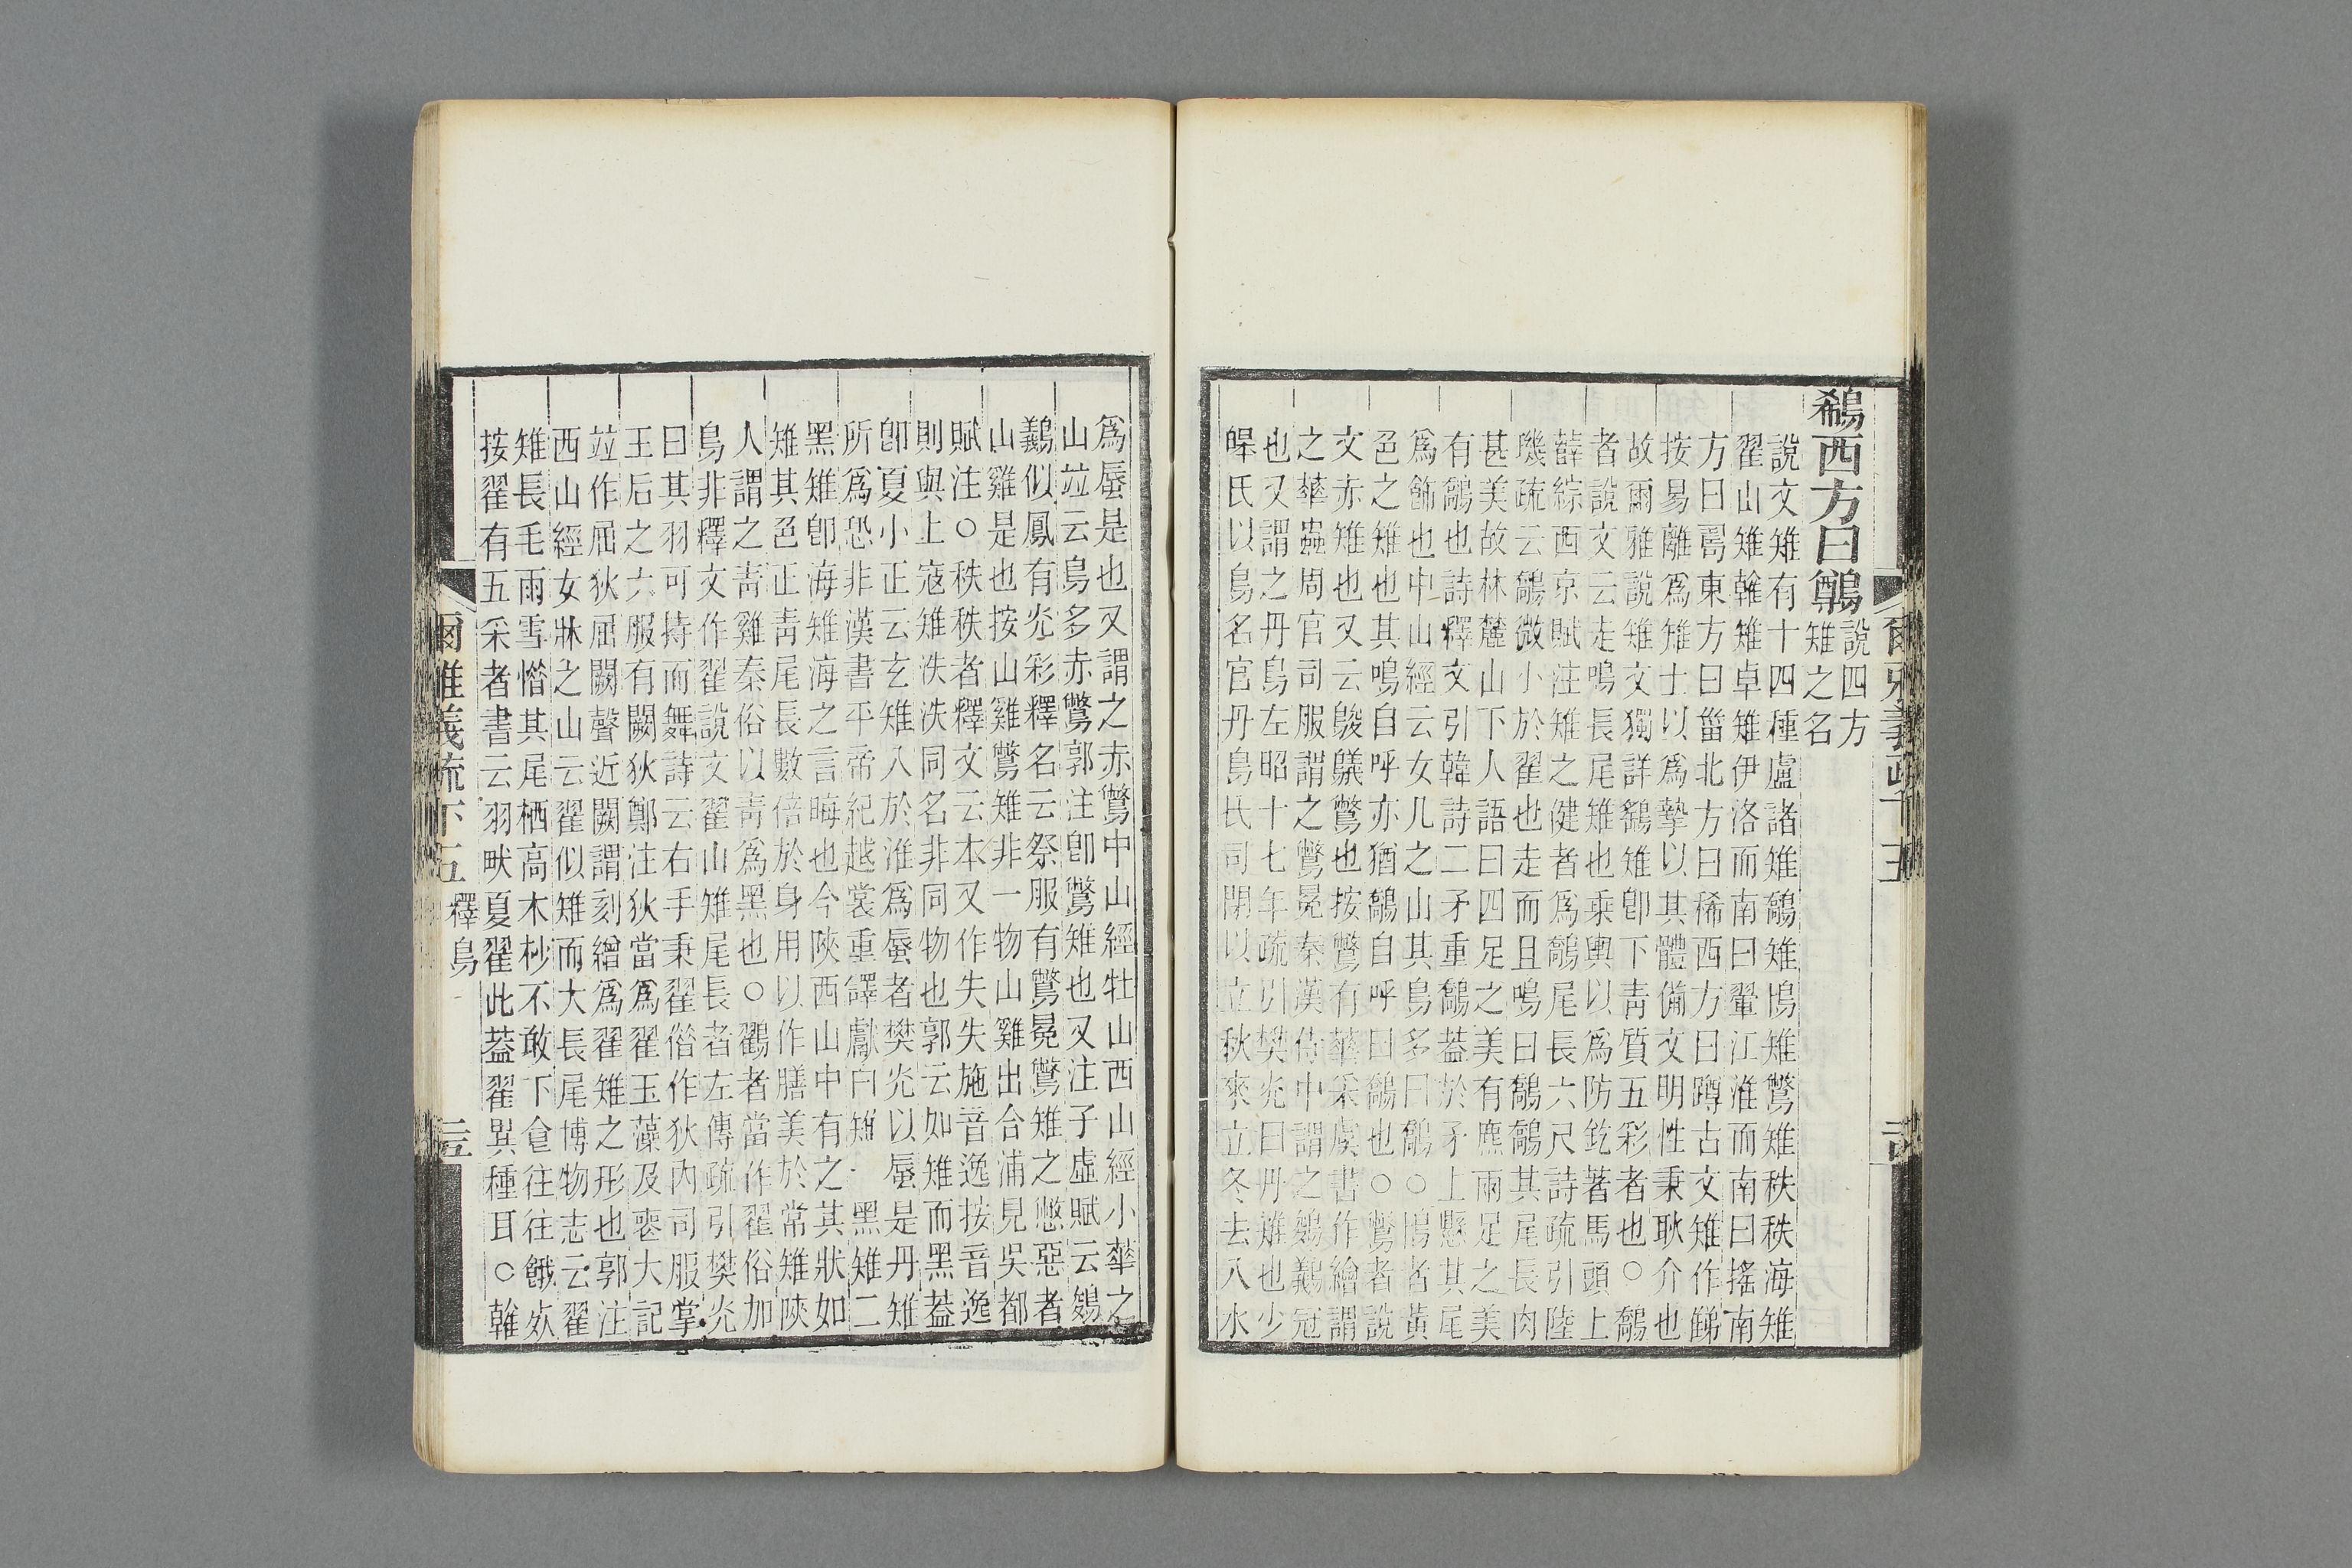 鵗西方曰鷷
說四方
雉之名
說文雉有十四種盧諸雉鷮雉鳪雉鷩雉秩秩海雉
翟山雉雗雉卓雉伊洛而南曰翬江淮而南曰搖南
方曰𢏚東方曰甾北方曰稀西方曰蹲古文雉作𨾋
按易離爲雉士以爲摯以其體備文明性秉耿介也
故爾雅說雉文獨詳鷂雉卽下靑質五彩者也○鷮
者說文云走鳴長尾雉也乘輿以爲防釳著馬頭上
薛綜西京賦注雉之健者爲鷮尾長六尺詩疏引陸
璣疏云鷮微小於翟也走而且鳴曰鷮鷮其尾長肉
甚美故林麓山下人語曰四足之美有麃兩足之美
有鷮也詩釋文引韓詩二矛重鷮葢於矛上懸其尾
爲飾也中山經云女几之山其鳥多曰鷮○鳪者黃
色之雉也其鳴自呼亦猶鷮自呼曰鷮也○鷩者說
文赤雉也又云鵔鸃鷩也按鷩有華采虞書作繪謂
之華蟲周官司服謂之鷩冕秦漢侍中謂之鵔鸃冠
也又謂之丹鳥左昭十七年疏引樊光曰丹雉也少
皞氏以鳥名官丹鳥氏司閉以立秋來立冬去入水
爾雅義疏下五
爲蜃是也又謂之赤鷩中山經牡山西山經小華之
山竝云鳥多赤鷩郭注卽鷩雉也又注子虛賦云鵔
鸃似鳳有光彩釋名云祭服有鷩冕鷩雉之憋惡者
山雞是也按山雞鷩雉非一物山雞出合浦見吳都
賦注○秩秩者釋文云本又作失失施音逸按音逸
則與上寇雉泆泆同名非同物也郭云如雉而黑葢
卽夏小正云玄雉入於淮爲蜃者樊光以蜃是丹雉
所爲恐非漢書平帝紀越裳重譯獻白雉一黑雉二
黑雉卽海雉海之言晦也今陝西山中有之其狀如
雉其色正靑尾長數倍於身用以作膳美於常雉陝
人謂之靑雞秦俗以靑爲黑也○鸐者當作翟俗加
鳥非釋文作翟說文翟山雉尾長者左傳疏引樊光
曰其羽可持而舞詩云右手秉翟偕作狄內司服掌
王后之六服有闕狄鄭注狄當爲翟玉藻及喪大記
竝作屈狄屈闕聲近闕謂刻繒爲翟雉之形也郭注
西山經女牀之山云翟似雉而大長尾博物志云翟
雉長毛雨雪惜其尾栖高木杪不敢下食往往餓死
按翟有五采者書云羽畎夏翟此葢翟異種耳○雗
爾雅義疏下五
釋鳥